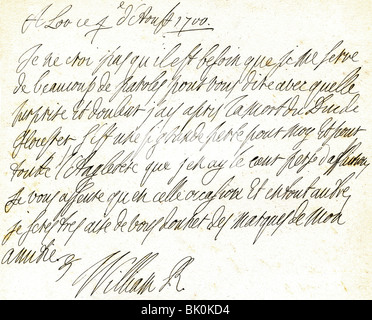 A Loo ce 4e d'Aoust 1700.
Je ne croi pas qu'il est besoin que je me serve
de beaucoup de paroles pour vous dire avec quelle
surprise et douleur j'ay apris la mort du Duc de
Glocester. C'est une si grande perte pour moy et pour
toute l'Angleterre que j'en ay le cœur percé d'affliction
je vous assure qu'en cette occasion Et en tout autre
je seray tres aise de vous donner des marques de mon
amitié
William R.
alamy
Image ID: BK0KD4
www.alamy.com